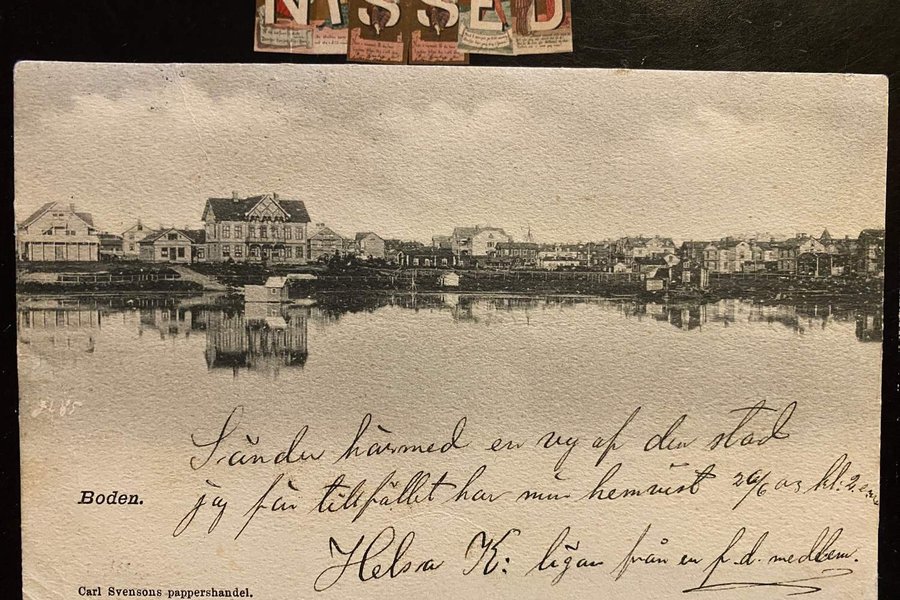 NISSED
Sänder härmed en vy af den stad
Boden.
jag för tillfället har min hemvist 26/6 03 kl: 2 e.m
Helsa K: ligan från en f.d. medlem.
Carl Svensons pappershandel.